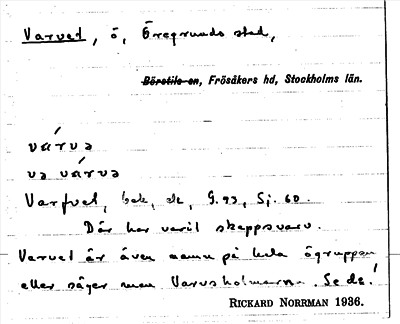 Varvet, ö, Öregrunds stad,
Börstils sn, Frösåkers hd, Stockholms län.
várvə
və várvə
Varfvet, bek, ek, G. 93, Sj. 60.
Där har varit skeppsvarv.
Varvet är även namn på hela ögruppen
eller säger man Varvsholmarna. Se de!
RICKARD NORRMAN 1936.